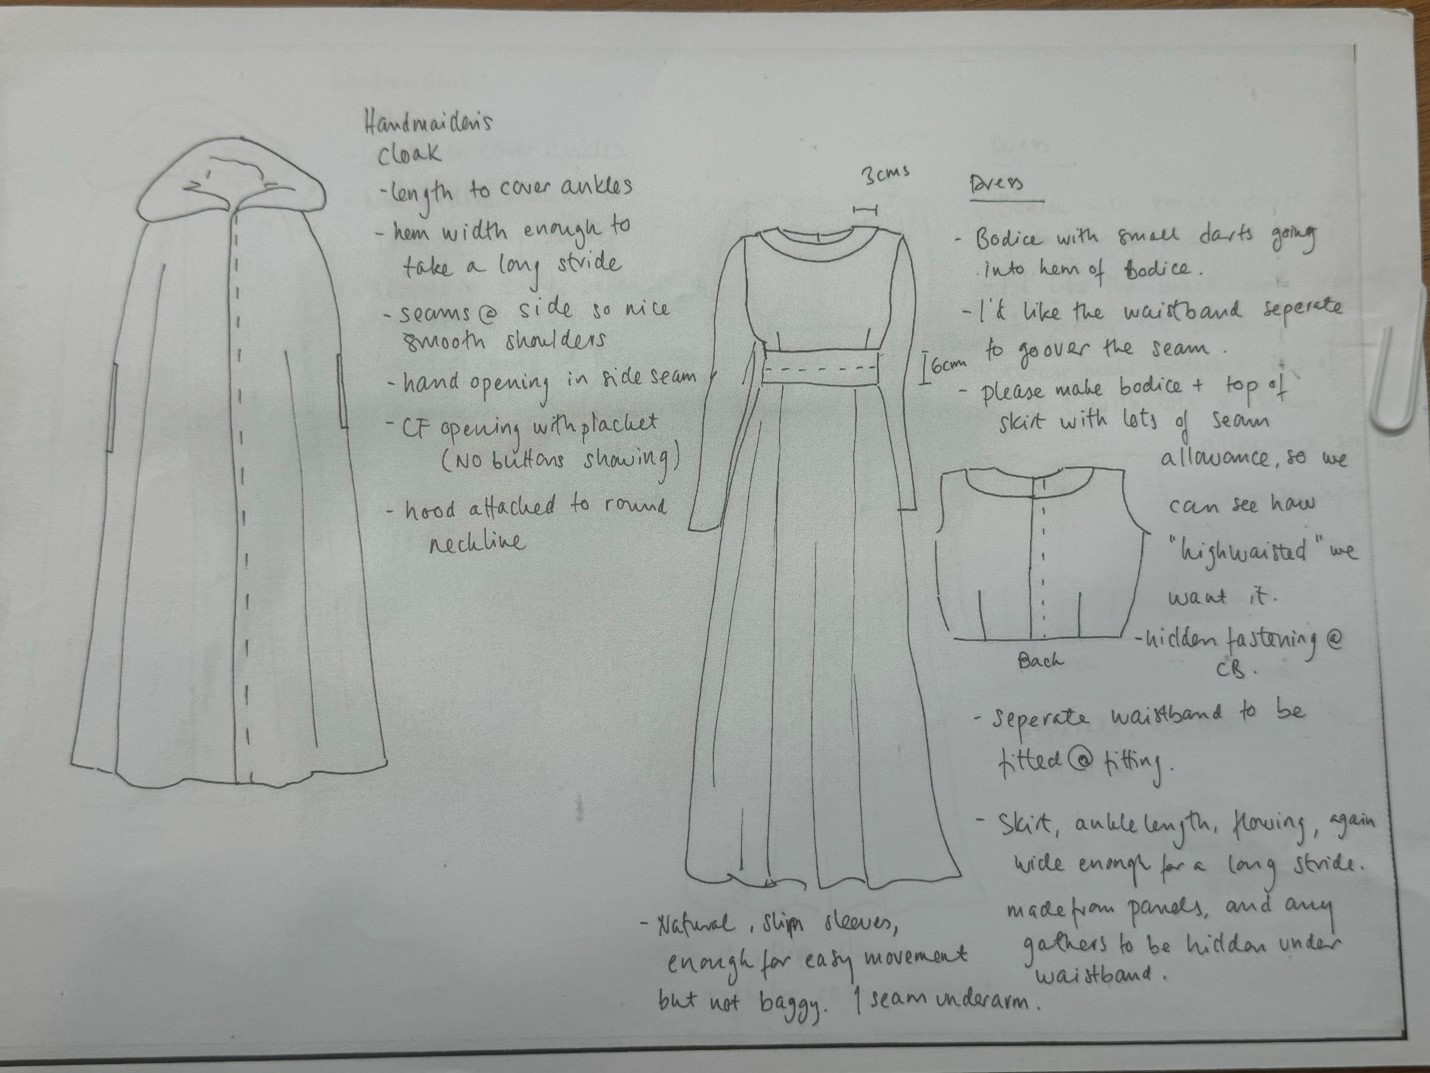 Handmaiden's
cloak
- length to cover ankles
- hem width enough to
take a long stride
- seams @ side so nice
smooth shoulders
- hand opening in side seam
- CF opening with placket
(NO buttons showing)
- hood attached to round
neckline
3cms
6cm
Dress
- Bodice with small darts going
into hem of Bodice.
- I'd like the waistband seperate
to go over the seam.
- please make bodice + top of
skirt with lots of seam
allowance, so we
can see how
"highwaisted" we
want it.
- hidden fastening @
CB.
Back
- seperate waistband to be
fitted @ fitting.
- Skirt, ankle length, flowing, again
wide enough for a long stride.
made from panels, and any
gathers to be hidden under
waistband.
- Natural, slim sleeves,
enough for easy movement
but not baggy. 1 seam underarm.